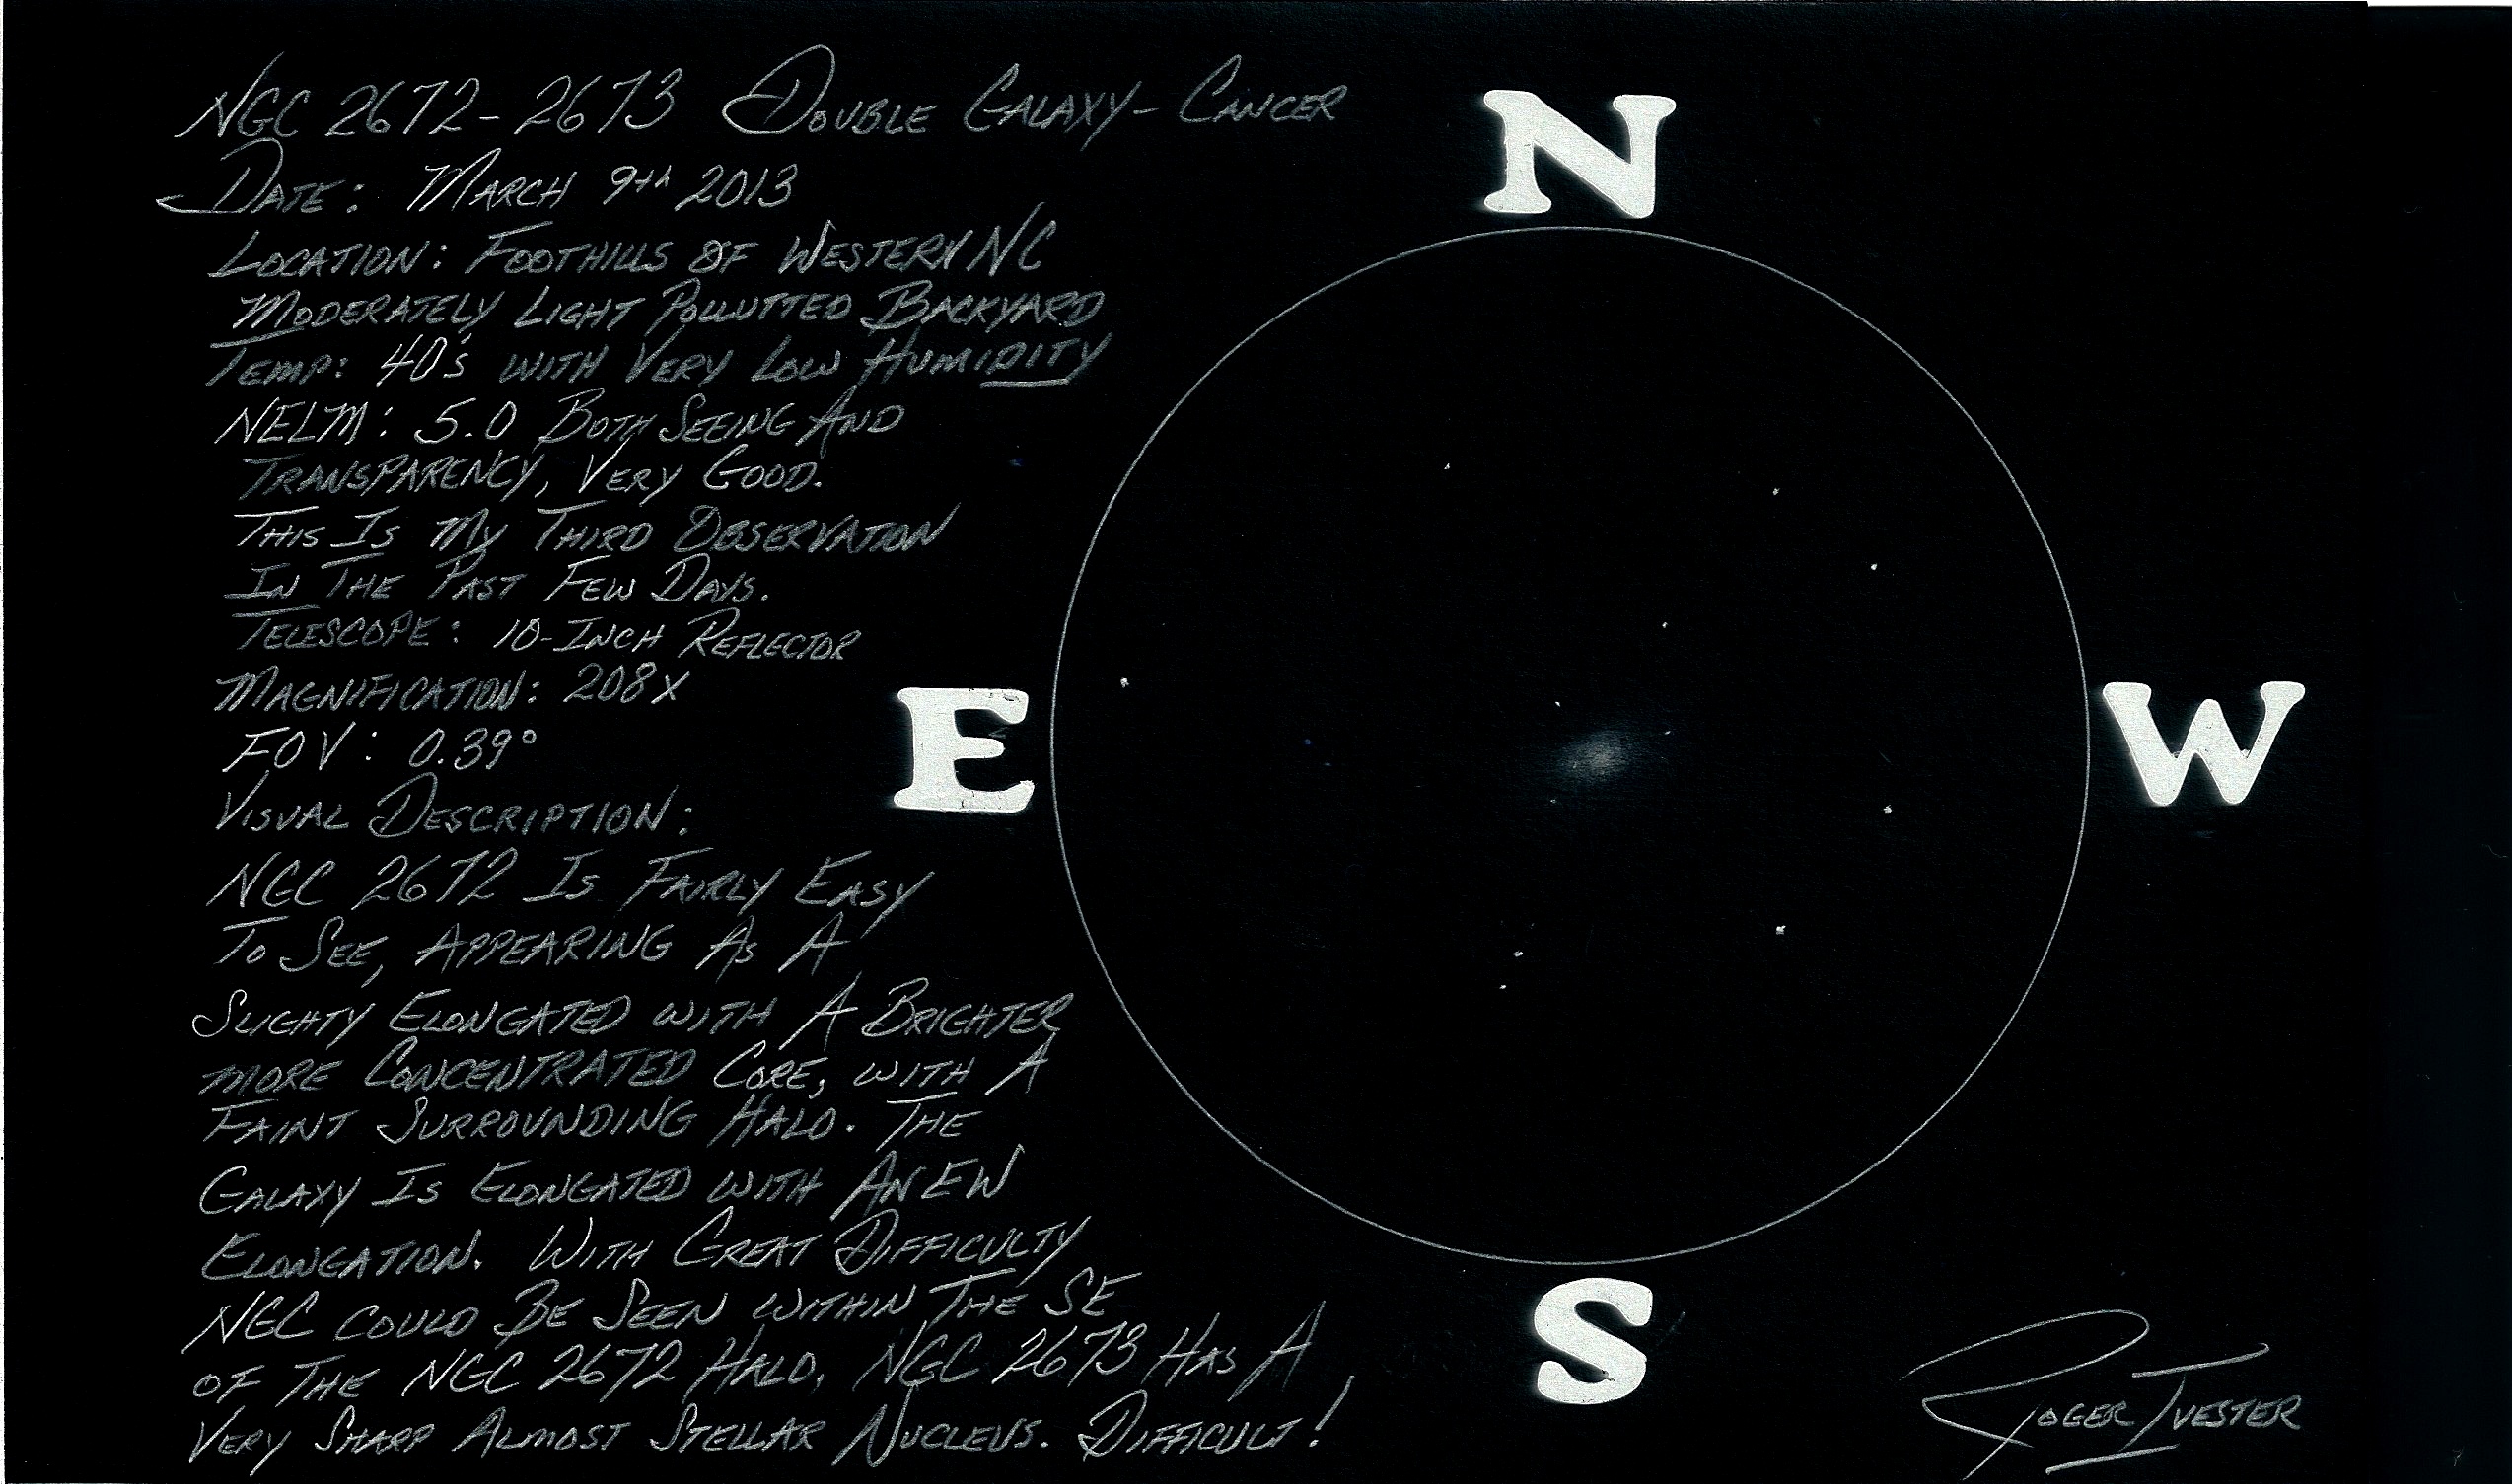 NGC 2672-2673 Double Galaxy-Cancer
Date: March 9th 2013
Location: Foothills of Western NC
Moderately Light Pollutted Backyard
Temp: 40's with Very Low Humidity
NELM: 5.0 Both Seeing And
Transparency, Very Good.
This Is My Third Observation
In The Past Few Days.
Telescope: 10-Inch Reflector
Magnification: 208x
FOV: 0.39°
Visual Description:
NGC 2672 Is Fairly Easy
To See, Appearing As A
Slighty Elongated with A Brighter
more Concentrated Core, with A
Faint Surrounding Halo. The
Galaxy Is Elongated with An EW
Elongation. With Great Difficulty
NGC could Be Seen within The SE
of The NGC 2672 Halo, NGC 2673 Has A
Very Sharp Almost Stellar Nucleus. Difficult!
N
E
W
S
Roger Ivester